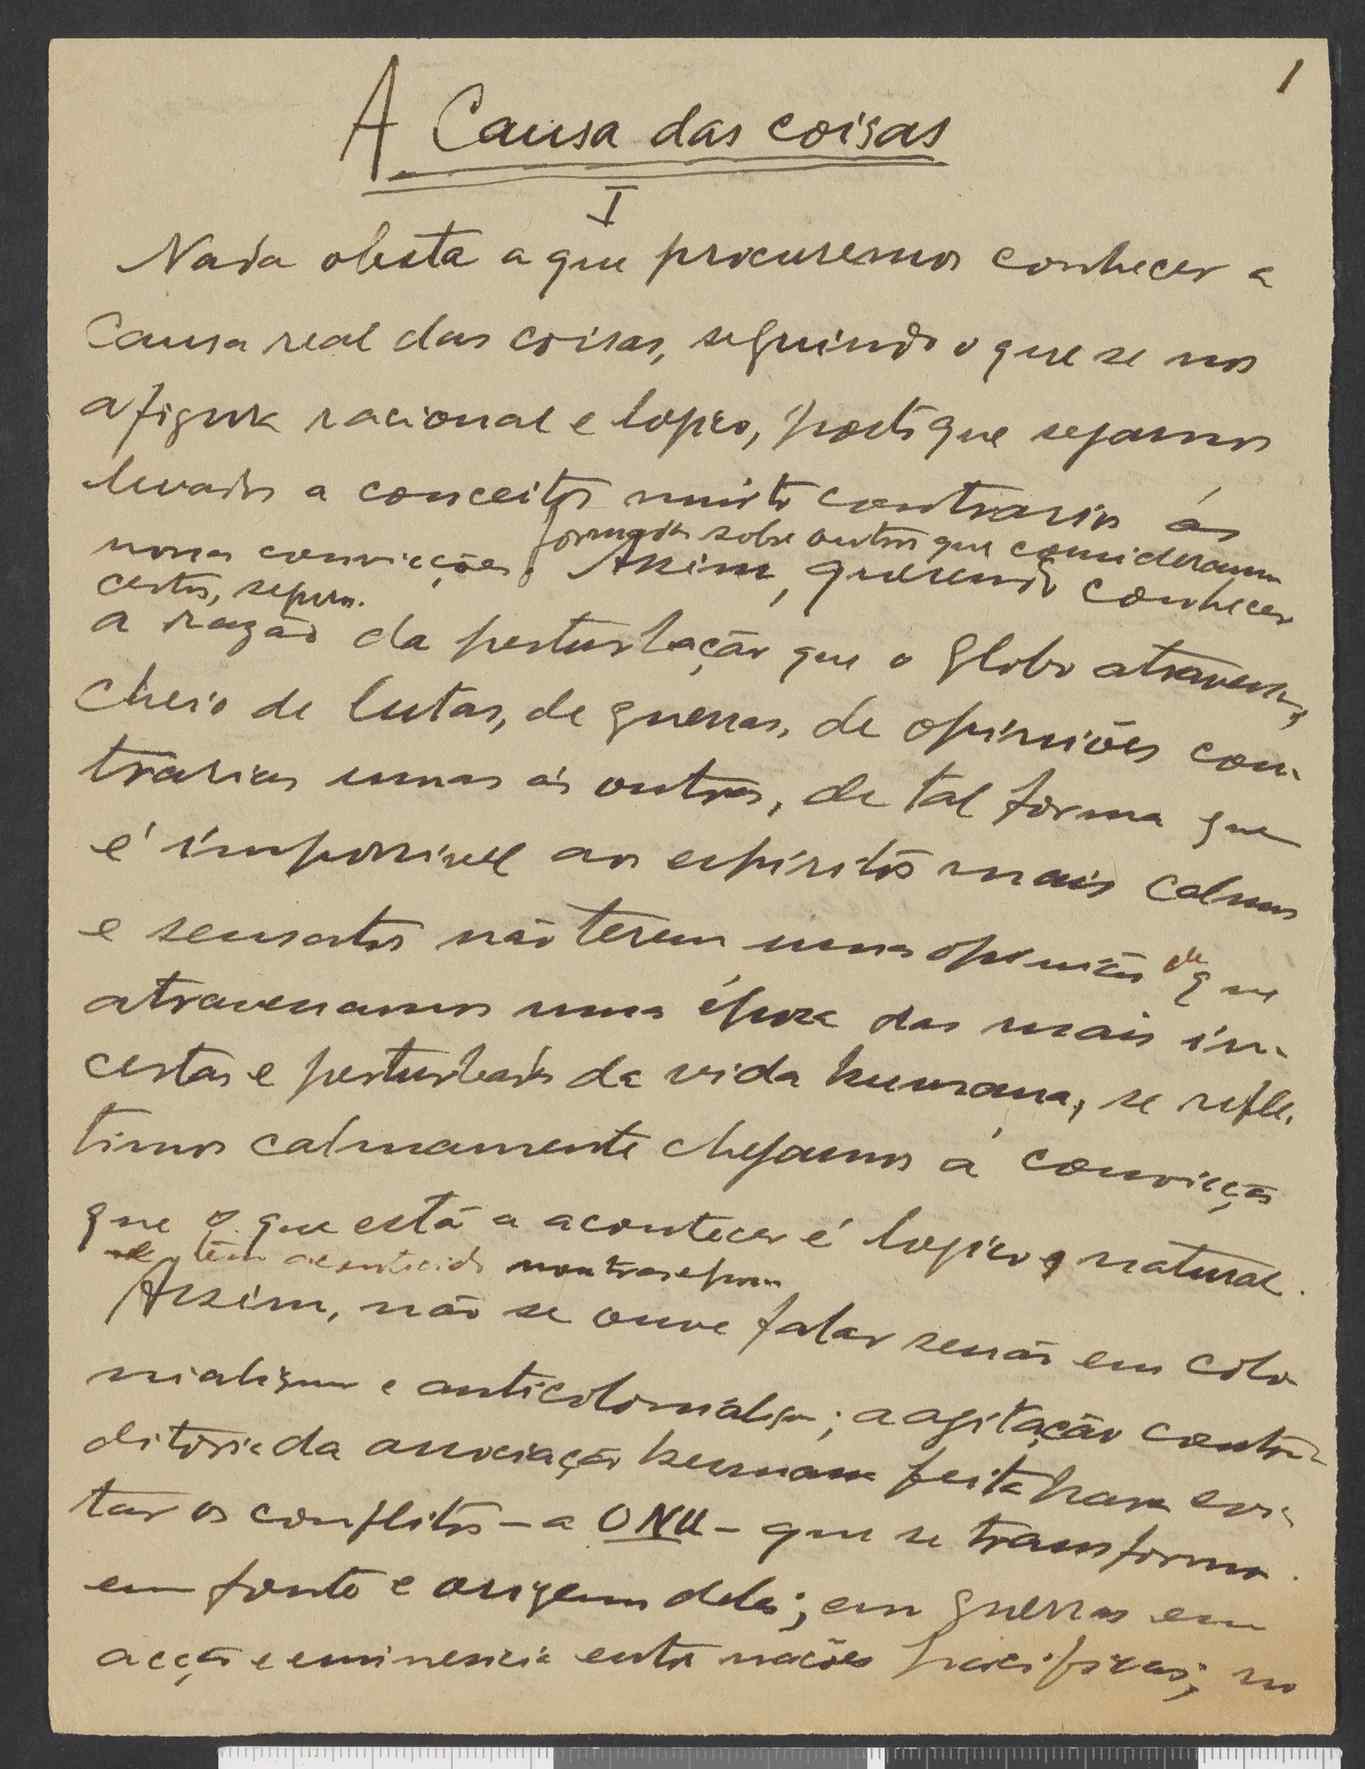 1
A Causa das coisas
I
Nada obsta a que procuremos conhecer a
Causa real das coisas, seguindo o que se nos
afigura racional e logico, posto que sejamos
levados a conceitos muito contrarios ás
formadas sobre outros que consideramos
nossas convicções. Assim, querendo conhecer
certos, seguros.
a razão da perturbação que o Globo atravessa,
cheio de lutas, de guerras, de opiniões con-
trarias umas ás outras, de tal forma que
é impossivel aos espiritos mais calmos
e sensatos não terem uma opinião de que
atravessamos uma época das mais in-
certas e perturbadas da vida humana, se refle-
timos calmamente chegamos á convicção
que o que está a acontecer é logico e natural.
e tem acontecido noutras epocas
Assim, não se ouve falar senão em colo
nialismo e anticolonialismo; a agitação contra-
ditoria da associação humana feita para evi-
tar os conflitos - a ONU - que se transforma
em fonte e origem deles; em guerras em
acção e eminencia entre nações pacificas; no